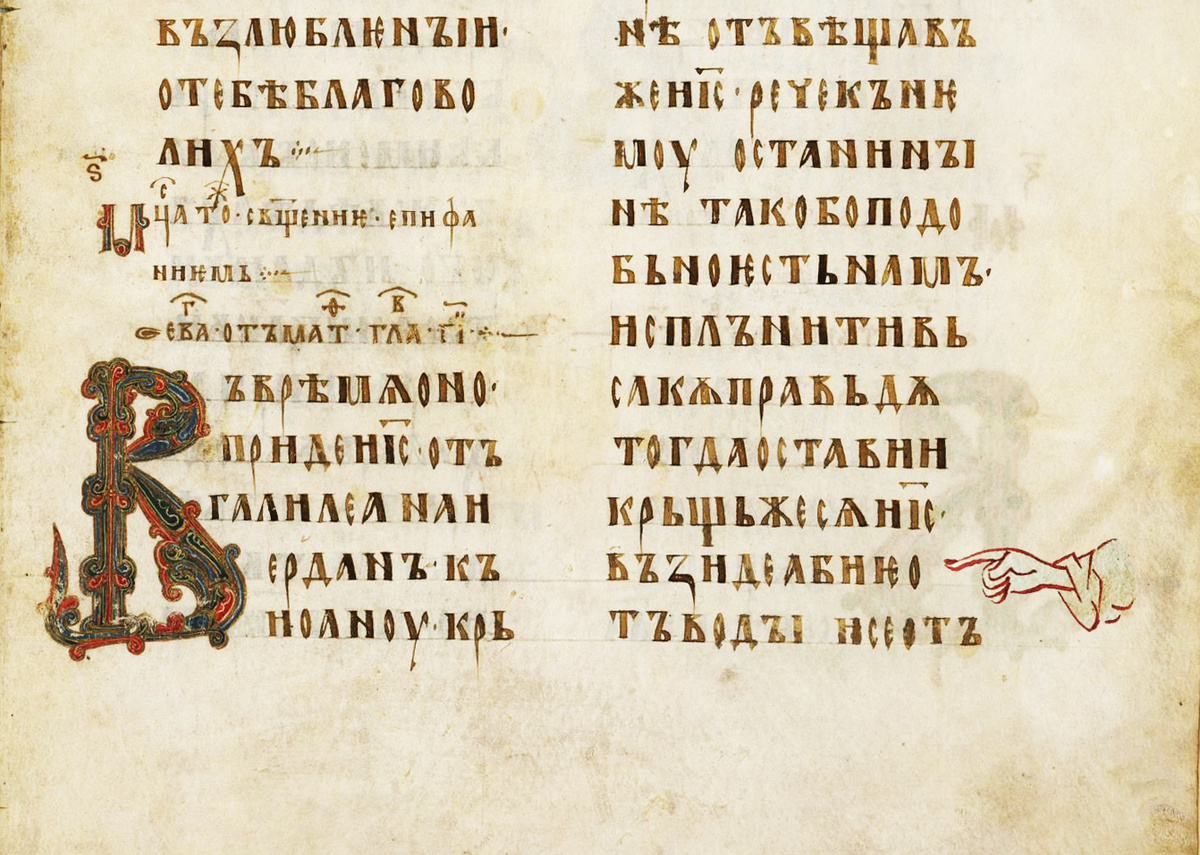 ВЪЗЛЮБЛЮНЪІИ·
ОТЕБѢБЛАГОВО
ЛИХЪ
Ѕ҃
МЦ҃А ТО҃·СВѦЩЕНИѤ·ЕПИФА
НИѤМЬ
ЕВА·ОТЪМАТ҇·ГЛА·Г҃І
ВЪВРѢМѦОНО·
ПРИДЕИІ҃С·ОТЪ
ГАЛИЛЕѦ НАИ
ЕРДАНЪ·КЪ
ИОАНОУ·КРЬ
НѢ ОТЪВѢЩАВЪ
ЖЕИІ҃С·РЕЧЕКЪНѤ
МОУ ОСТАНИНЪІ
НѢ ТАКОБОПОДО
БЬНОѤСТЬНАМЪ·
ИСПЛЪНИТИВЬ
САКѪПРАВЬДѪ
ТОГДАОСТАВИИ
КРЬЩЬЖЕСѦИІ҃С·
ВЪЗИДЕАБИѤО
ТЪВОДЪІ ИСЕОТЪ